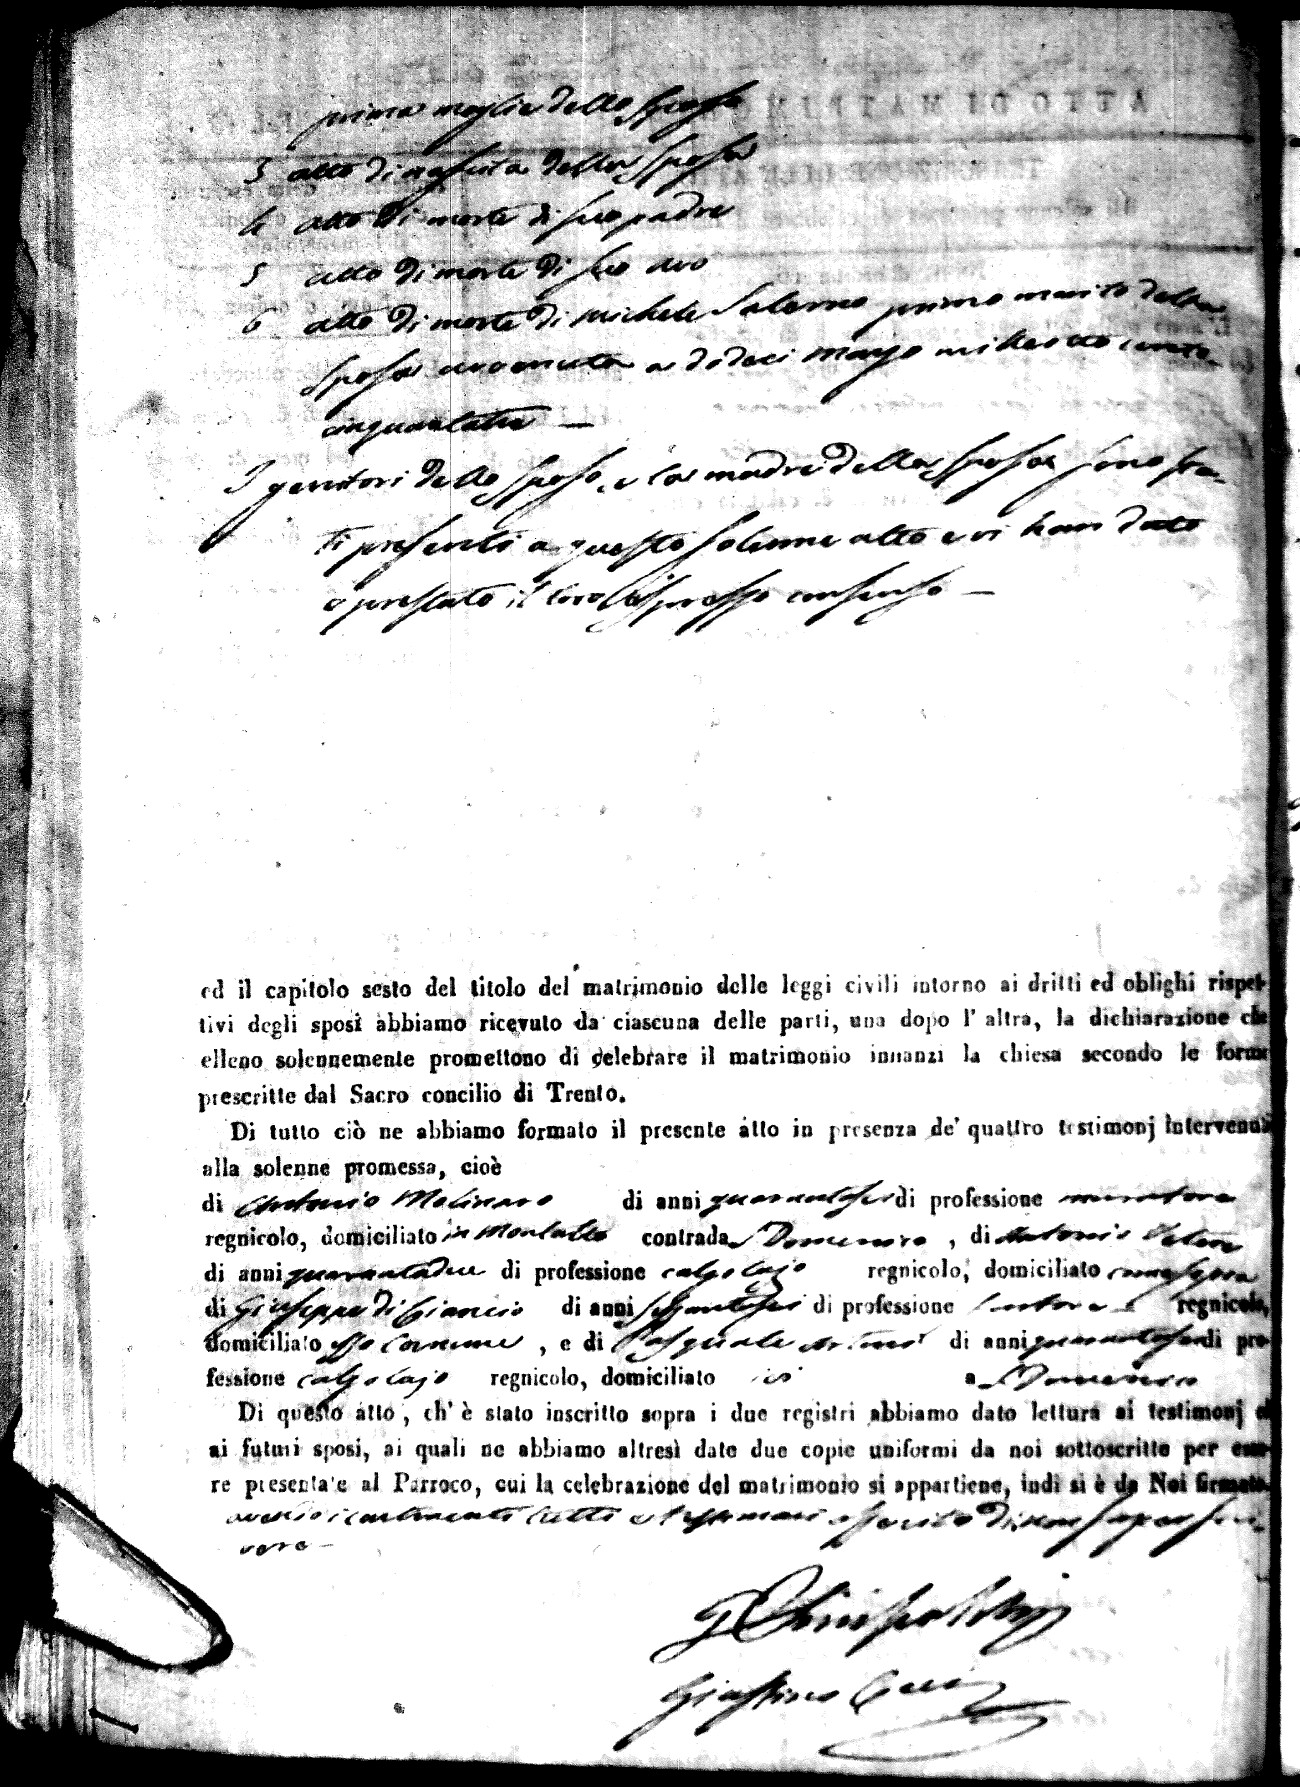 prima moglie dello Sposo
3 atto di nascita della Sposa
4 atto di morte di suo padre
5 atto di morte di suo avo
6 atto di morte di Michele Salerno primo marito della
Sposa avvenuta a dodeci marzo mille otto cento
cinquantatre —
I genitori dello Sposo, e la madre della Sposa sono sta-
ti presenti a questo solenne atto e vi han dato
e prestato il loro espresso consenso —
ed il capitolo sesto del titolo del matrimonio delle leggi civili intorno ai dritti ed oblighi rispet-
tivi degli sposi abbiamo ricevuto da ciascuna delle parti, una dopo l' altra, la dichiarazione che
elleno solennemente promettono di celebrare il matrimonio innanzi la chiesa secondo le forme
prescritte dal Sacro concilio di Trento.
Di tutto ciò ne abbiamo formato il presente atto in presenza de' quattro testimonj intervenuti
alla solenne promessa, cioè
di Antonio Molinaro di anni quarantasei di professione muratore
regnicolo, domiciliato in Montalto contrada S Domenico , di Antonio
di anni quarantadue di professione calzolajo regnicolo, domiciliato
di Giuseppe di Ciancio di anni di professione regnicolo,
domiciliato esso Comune , e di Pasquale di anni di pro-
fessione calzolajo regnicolo, domiciliato ivi a S Domenico
Di questo atto , ch' è stato inscritto sopra i due registri abbiamo dato lettura ai testimonj ed
ai futuri sposi, ai quali ne abbiamo altresì date due copie uniformi da noi sottoscritte per esse-
re presentate al Parroco, cui la celebrazione del matrimonio si appartiene, indi si è da Noi firmato
avendo i contraenti tutti e testimoni asserito di non saper scri-
vere —
Giustino